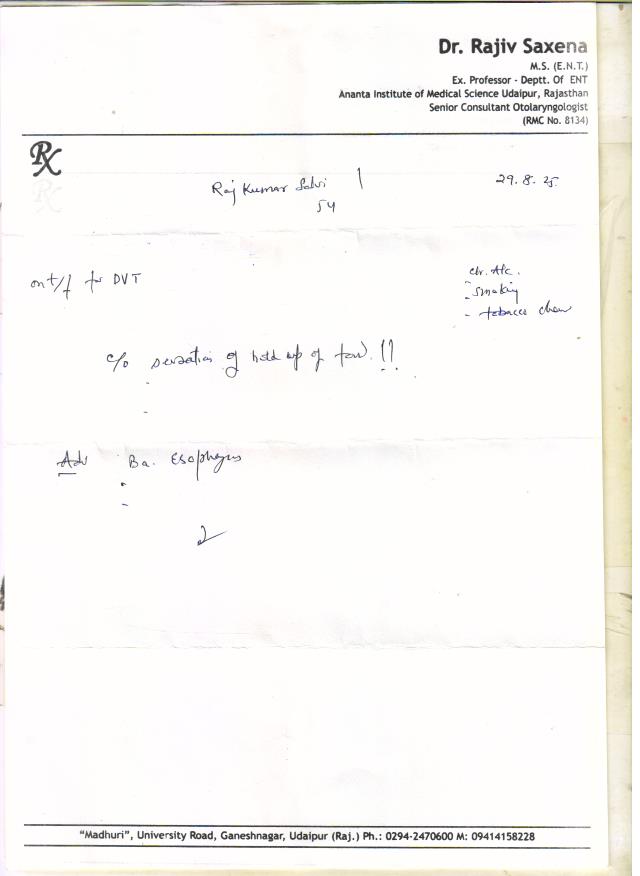 Dr. Rajiv Saxena
M.S. (E.N.T.)
Ex. Professor - Deptt. Of ENT
Ananta Institute of Medical Science Udaipur, Rajasthan
Senior Consultant Otolaryngologist
(RMC No. 8134)
Rx
Raj Kumar Salvi
29.8.25
54
on t/f for DVT
chr. Alc.
- smoking
- tobacco chew
c/o sensation of hold up of !!
Adv Ba. Esophagus
"Madhuri", University Road, Ganeshnagar, Udaipur (Raj.) Ph.: 0294-2470600 M: 09414158228